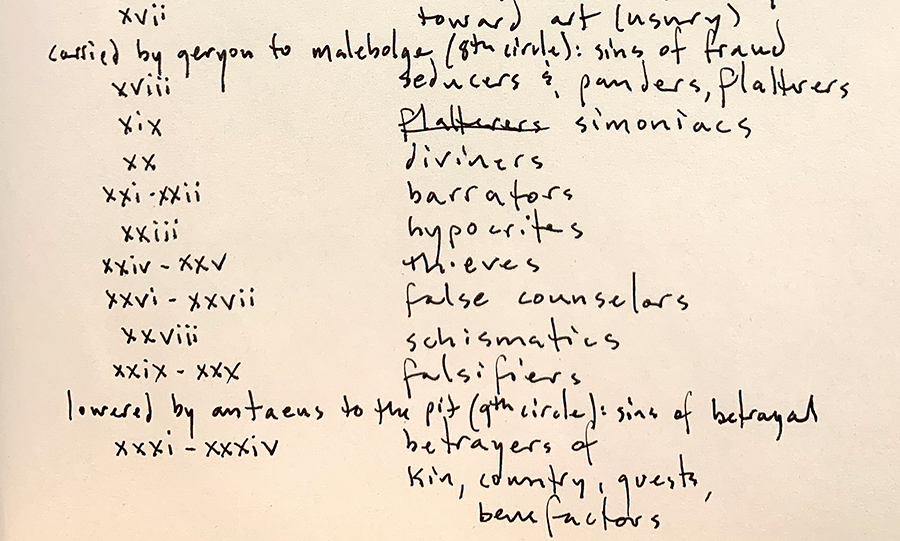 xvii toward art (usury)
carried by geryon to malebolge (8th circle): sins of fraud
xviii seducers & panders, flatterers
xix flatterers simoniacs
xx diviners
xxi-xxii barrators
xxiii hypocrites
xxiv - xxv thieves
xxvi - xxvii false counselors
xxviii schismatics
xxix - xxx falsifiers
lowered by antaeus to the pit (9th circle): sins of betrayal
xxxi - xxxiv betrayers of
kin, country, guests,
benefactors